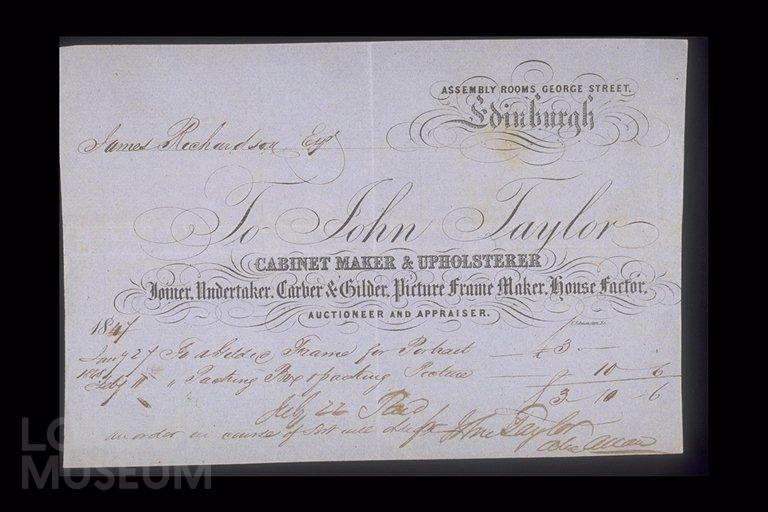 ASSEMBLY ROOMS, GEORGE STREET,
Edinburgh
James Richardson Esqr
To John Taylor
CABINET MAKER & UPHOLSTERER
Joiner, Undertaker, Carver & Gilder, Picture Frame Maker, House Factor,
AUCTIONEER AND APPRAISER.
1847
Jany 27 To a Gilded Frame for Portrait £3 —
1848
Feby 11 " Packing Box & packing Picture 10 6
£3 10 6
July 22 Paid
an order in course of Post will
John Taylor
LO
MUSEUM